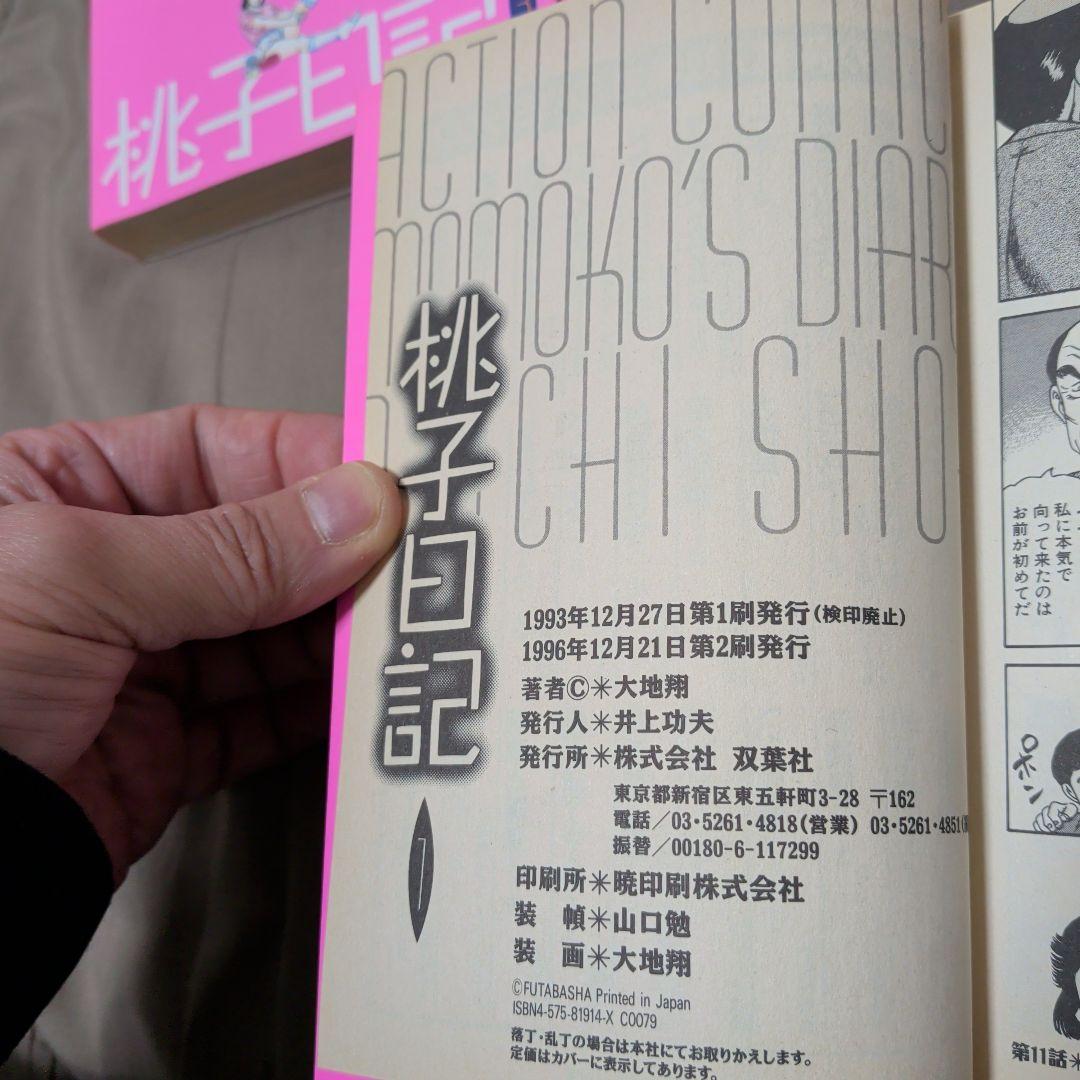 桃子日記
ACTION COMIC
MOMOKO'S DIAR
CHI SHO
桃子日記
1
1993年12月27日第1刷発行(検印廃止)
1996年12月21日第2刷発行
著者©✳大地翔
発行人✳井上功夫
発行所✳株式会社 双葉社
東京都新宿区東五軒町3-28 〒162
電話/03・5261・4818(営業) 03・5261・4851
振替/00180-6-117299
印刷所✳暁印刷株式会社
装 幀✳山口勉
装 画✳大地翔
©FUTABASHA Printed in Japan
ISBN4-575-81914-X C0079
落丁・乱丁の場合は本社にてお取りかえします。
定価はカバーに表示してあります。
私に本気で
向って来たのは
お前が初めてだ
第11話✳